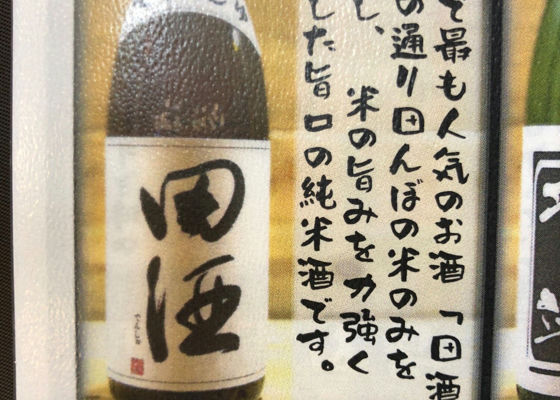 て最も人気のお酒「田酒
の通り田んぼの米のみを
し、米の旨みを力強く
した旨口の純米酒です。
田酒